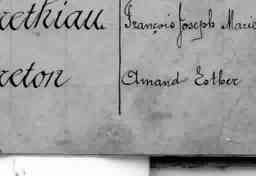 rethiau François Joseph Marie
reton Amand Esther